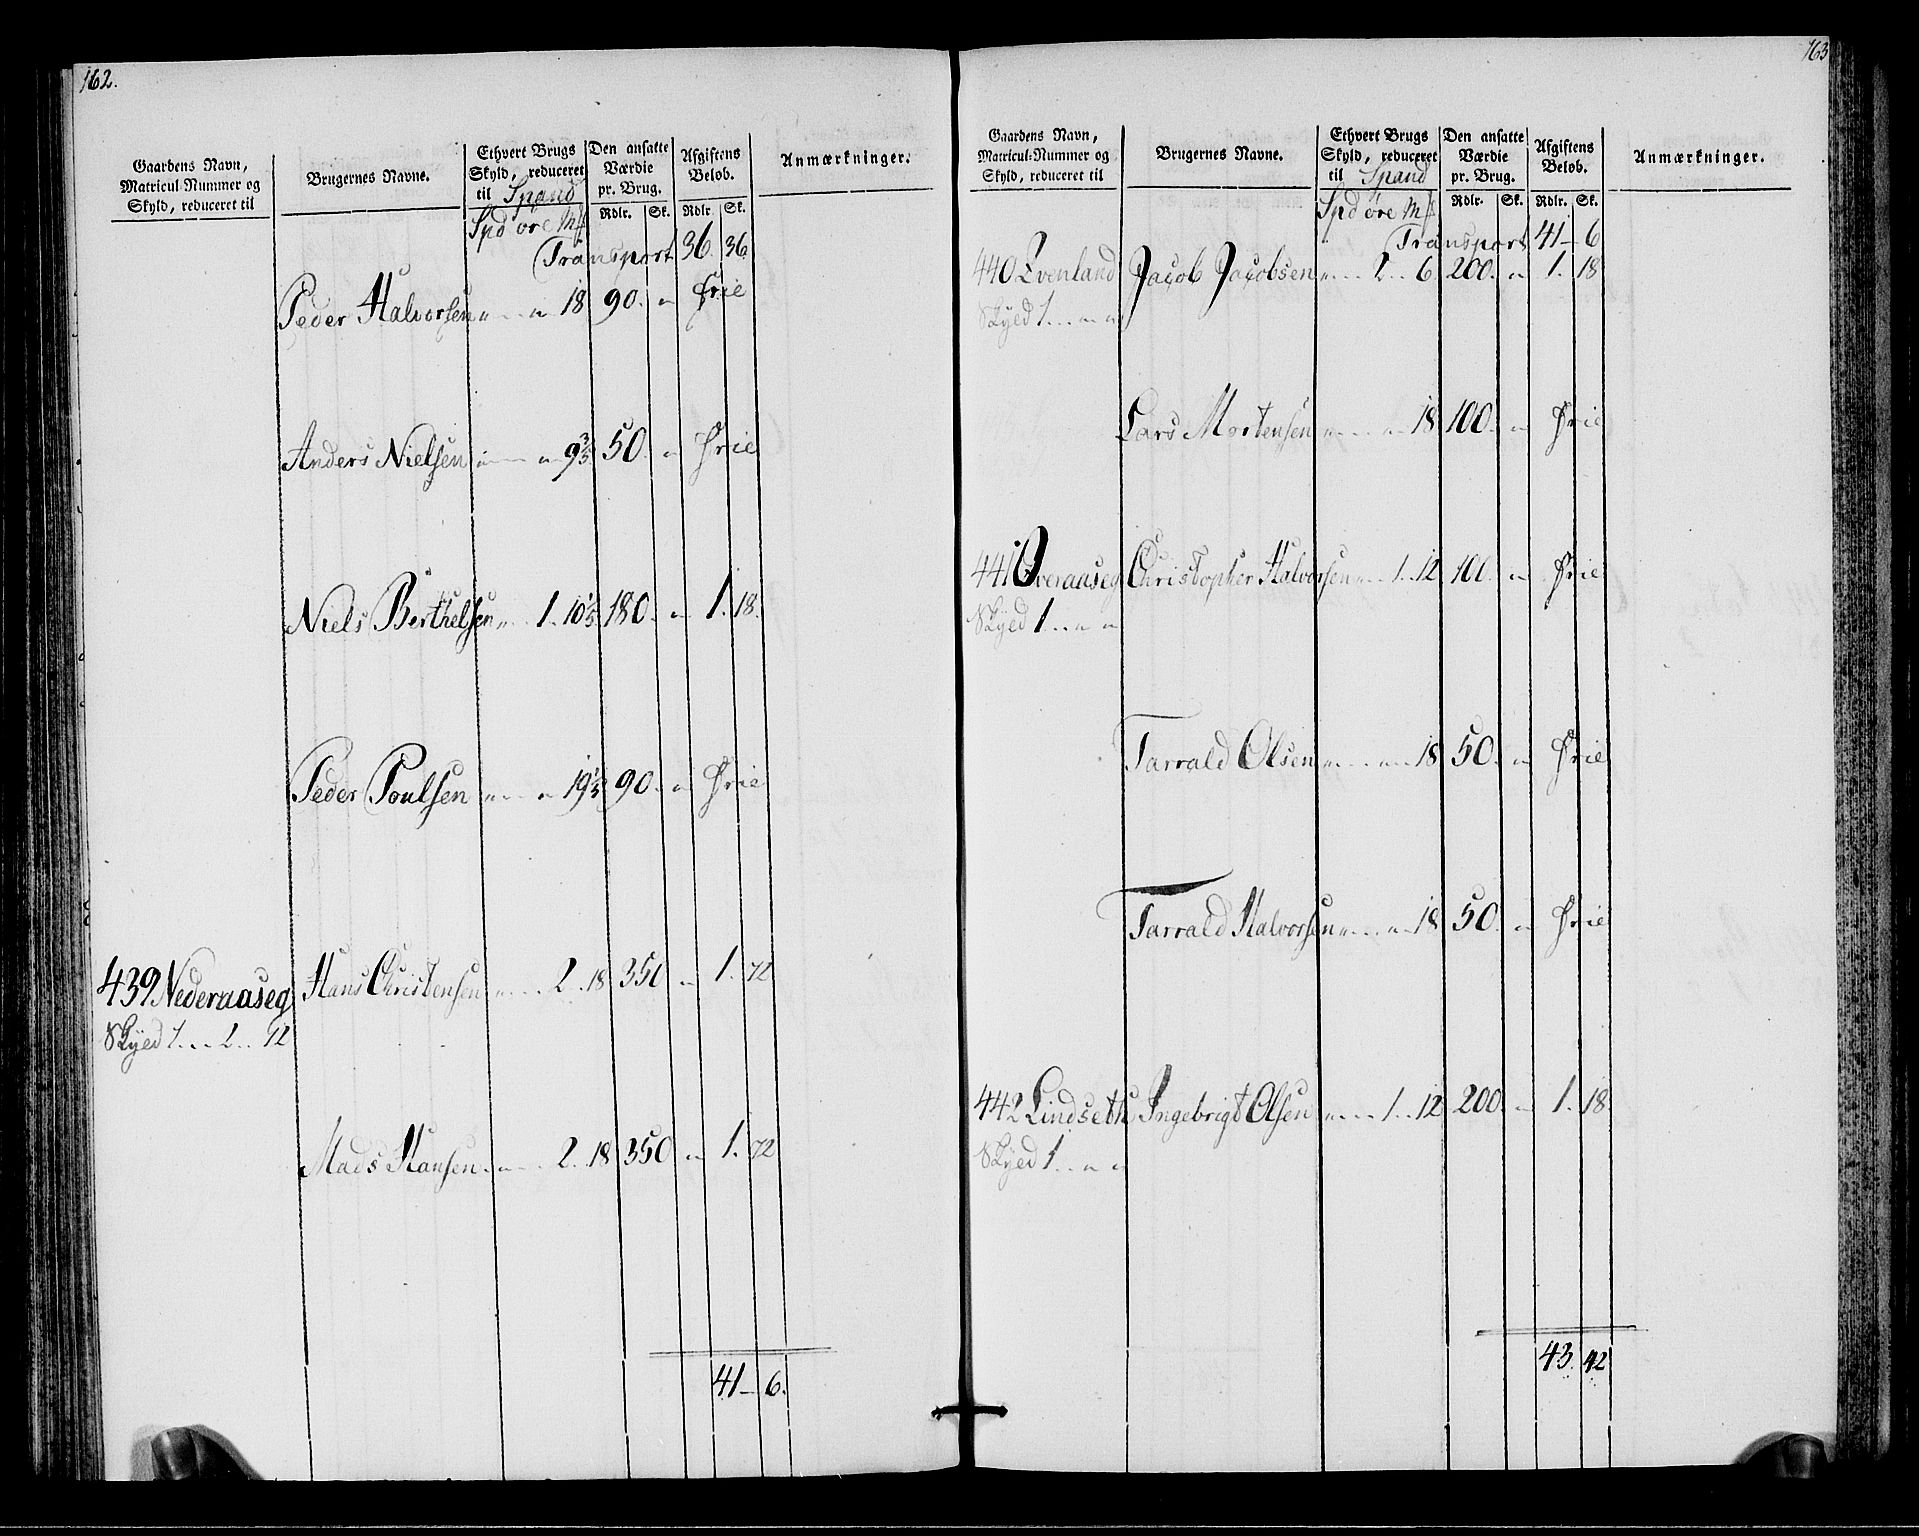 162.
Gaardens Navn, Matricul-Nummer og Skyld, reduceret til
Brugernes Navne.
Ethvert Brugs Skyld, reduceret til Spand
Den ansatte Værdie pr. Brug.
Afgiftens Belob.
Anmærkninger.
Spd øre Mk
Rdlr. Sk. Rdlr. Sk.
Transport 36. 36.
Peder Halvorsen „ . . „ 18 90. „ Frie
Anders Nielsen „ „ 9 3/5 50. „ Frie
Niels Berthelsen „ . 1. 10 1/5 180. „ 1. 18.
Peder Poulsen „ . . „ 19 1/5 90. „ Frie
439 Nederaaseg Hans Christensen „ . . . 2. 18 350 „ 1. 72
Skyed 1 . . . 2 . . 12
Mads Hansen „ . . . 2. 18 350 „ 1. 72
41 – 6.
163
Gaardens Navn, Matricul-Nummer og Skyld, reduceret til
Brugernes Navne.
Ethvert Brugs Skyld, reduceret til Spand
Den ansatte Værdie pr. Brug.
Afgiftens Belob.
Anmærkninger.
Spd øre Mk
Rdlr. Sk. Rdlr. Sk.
Transport 41 – 6
440 Evenland Jacob Jacobsen „ . . . 2 . . 6 200. „ 1. 18
Skyed 1 . . „ „
Lars Mortensen „ . . . „ 18 100. „ Frie
441 Overaaseg Christopher Halvorsen „ . . 1. . 12 100. „ Frie
Skyed 1 . . „ „
Tarrald Olsen „ . . . „ 18 50. „ Frie
Tarrald Halvorsen „ . . . „ 18 50. „ Frie
442 Lindseth Ingebrigt Olsen „ . . . 1. . 12 200. „ 1. 18.
Skyed 1 . . „ „
43. 42